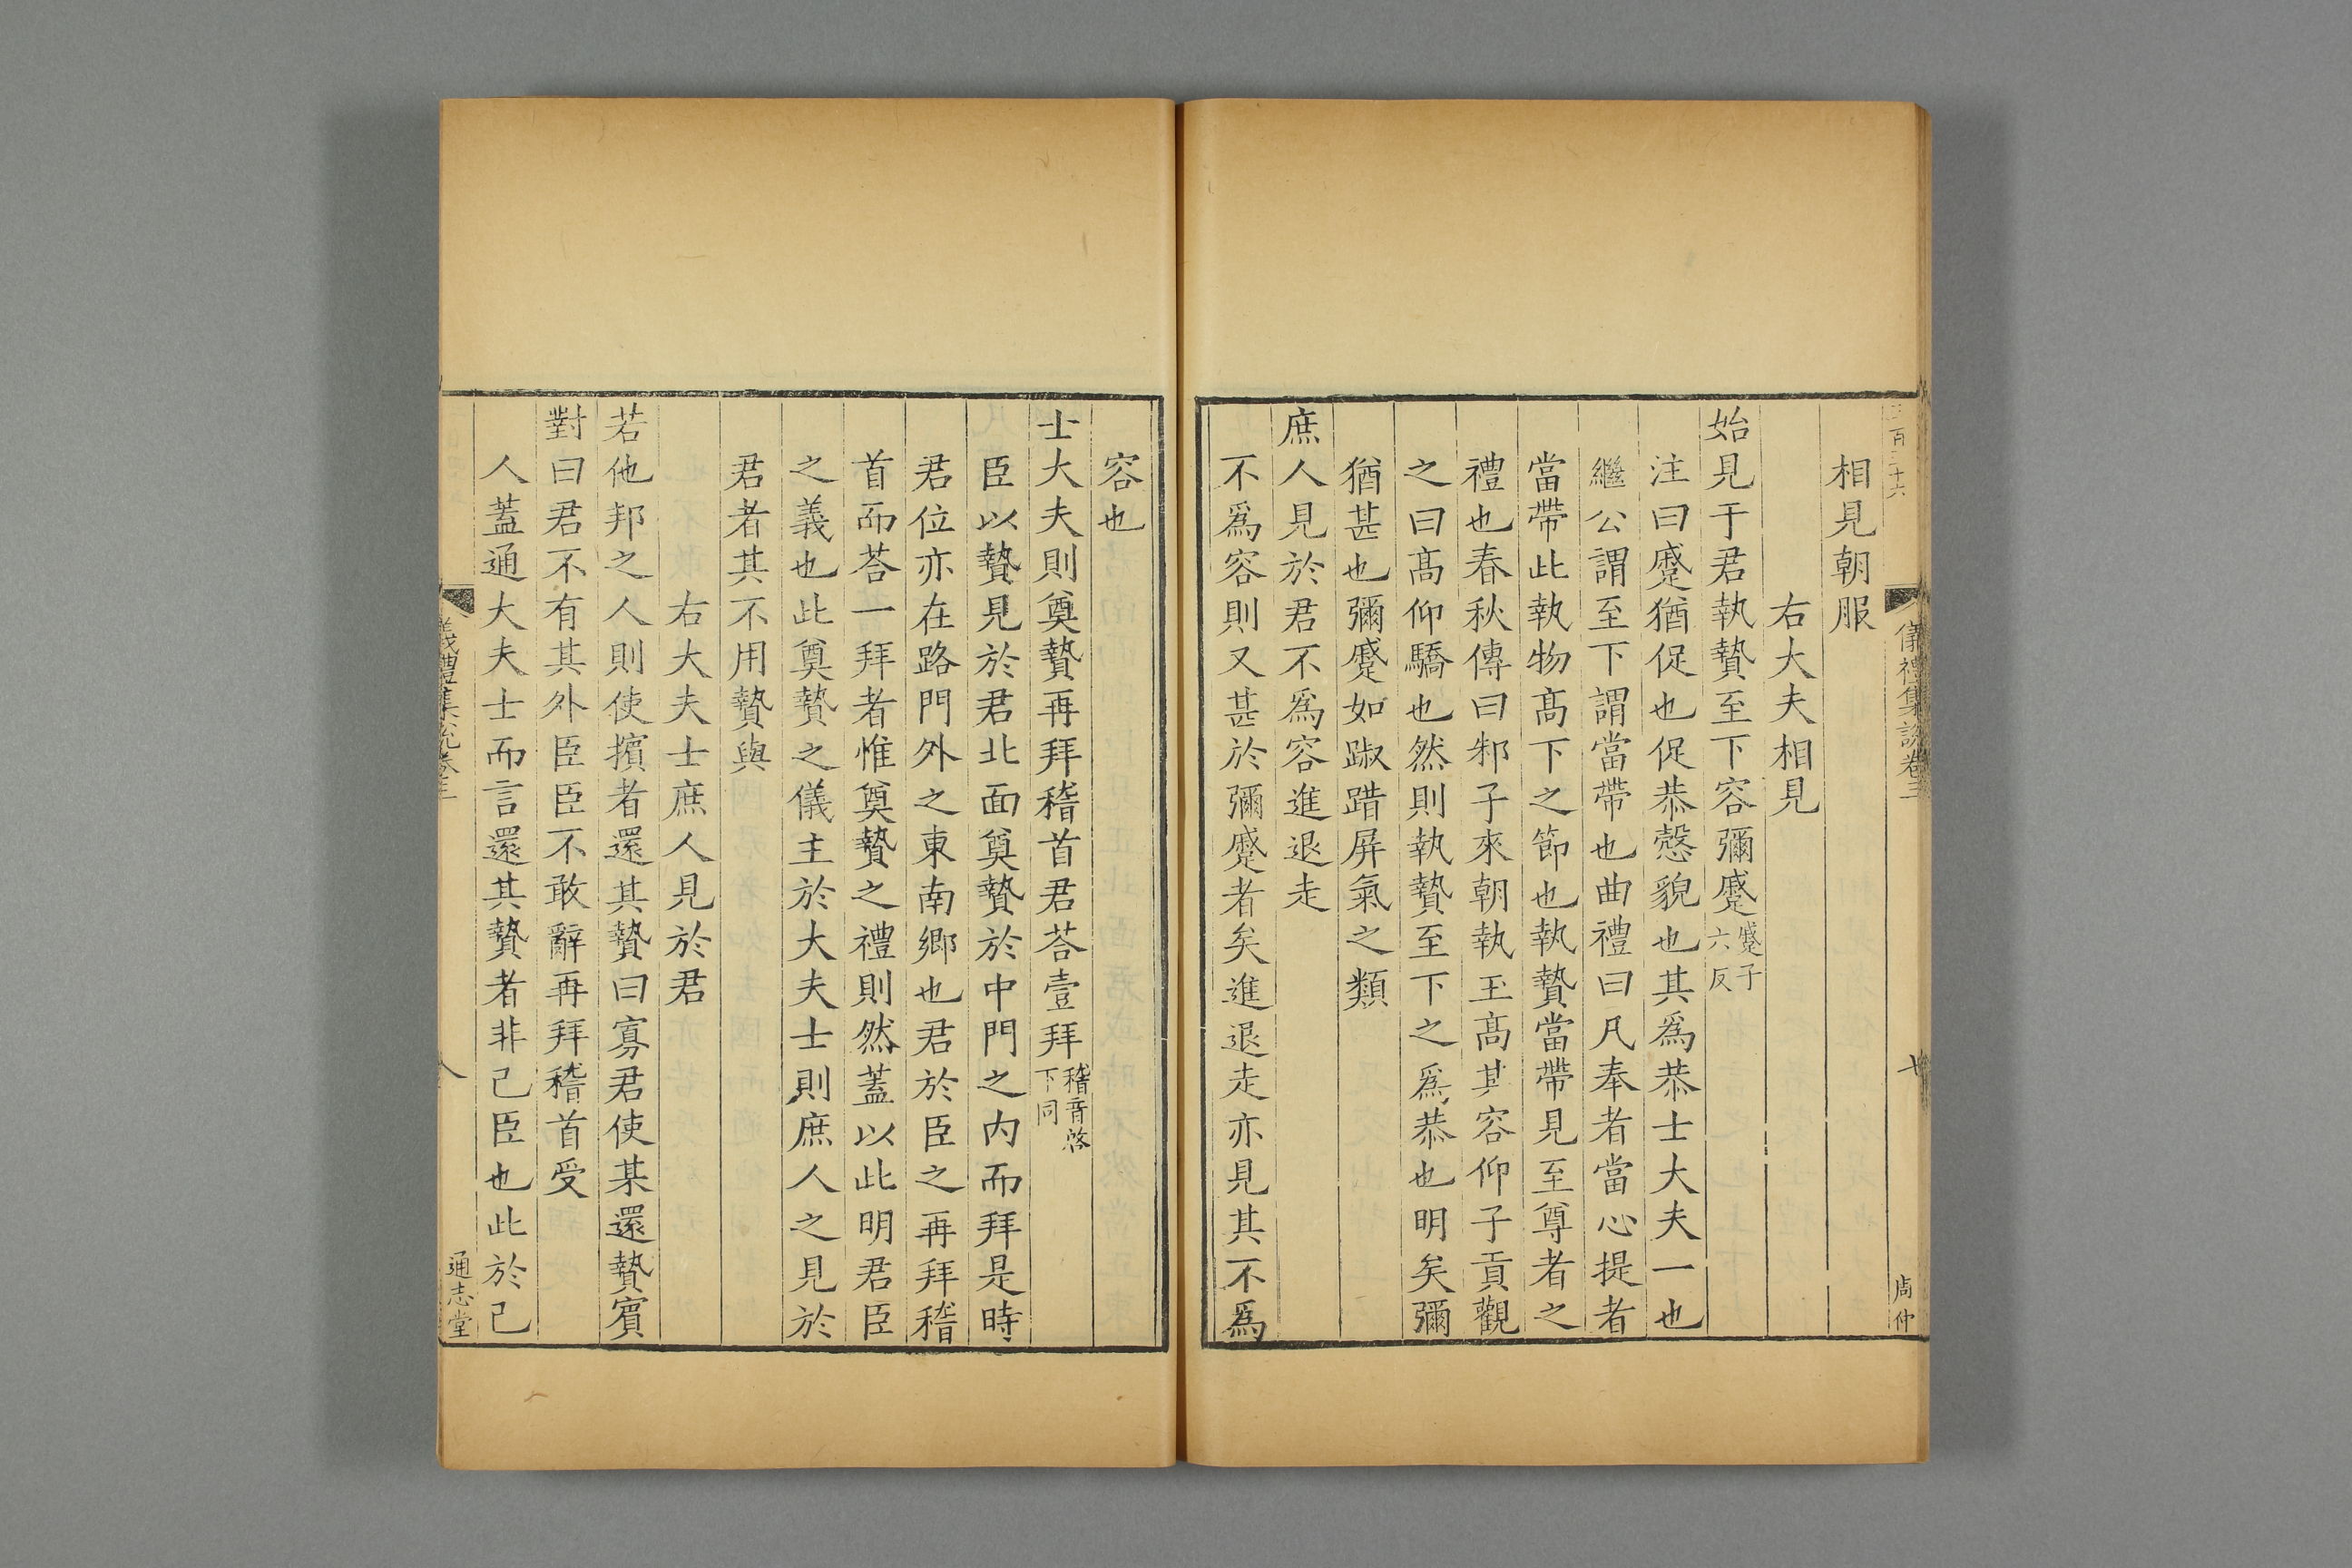 儀禮集說卷三
七
周仲
相見朝服
右大夫相見
始見于君執贄至下容彌蹙蹙子六反
注曰蹙猶促也促恭慤貌也其爲恭士大夫一也
繼公謂至下謂當帶也曲禮曰凡奉者當心提者
當帶此執物髙下之節也執贄當帶見至尊者之
禮也春秋傳曰邾子來朝執玉髙其容仰子貢觀
之曰髙仰驕也然則執贄至下之爲恭也明矣彌
猶甚也彌蹙如踧踖屏氣之類
庶人見於君不爲容進退走
不爲容則又甚於彌蹙者矣進退走亦見其不爲
容也
士大夫則奠贄再拜稽首君荅壹拜稽音啓下同
臣以贄見於君北面奠贄於中門之内而拜是時
君位亦在路門外之東南鄉也君於臣之再拜稽
首而荅一拜者惟奠贄之禮則然蓋以此明君臣
之義也此奠贄之儀主於大夫士則庶人之見於
君者其不用贄與
右大夫士庶人見於君
若他邦之人則使擯者還其贄曰寡君使某還贄賓
對曰君不有其外臣臣不敢辭再拜稽首受
人蓋通大夫士而言還其贄者非己臣也此於己
儀禮集說卷三
八
通志堂